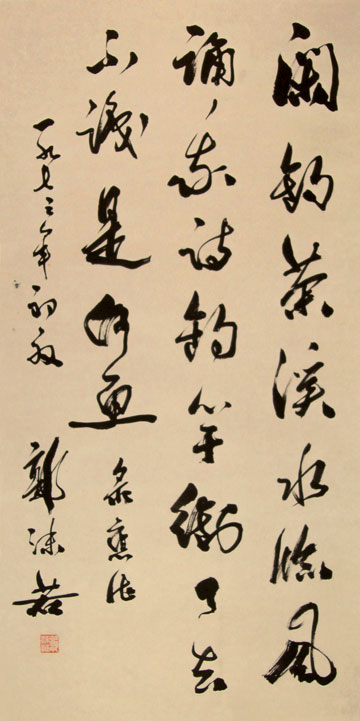 閑釣茶溪水臨風
誦我詩釣竿銜了去
不識是何魚 录舊作
一九七三年初 郭沫若